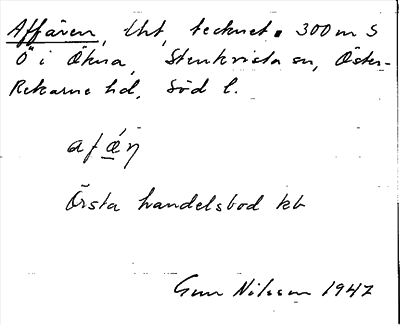 Affären, lht, tecknet ▪ 300 m S
Ö i Ökna, Stenkvista sn, Öster-
Rekarne hd, Söd l.
afǽŋ
Örsta handelsbod kb
Gun Nilsson 1947